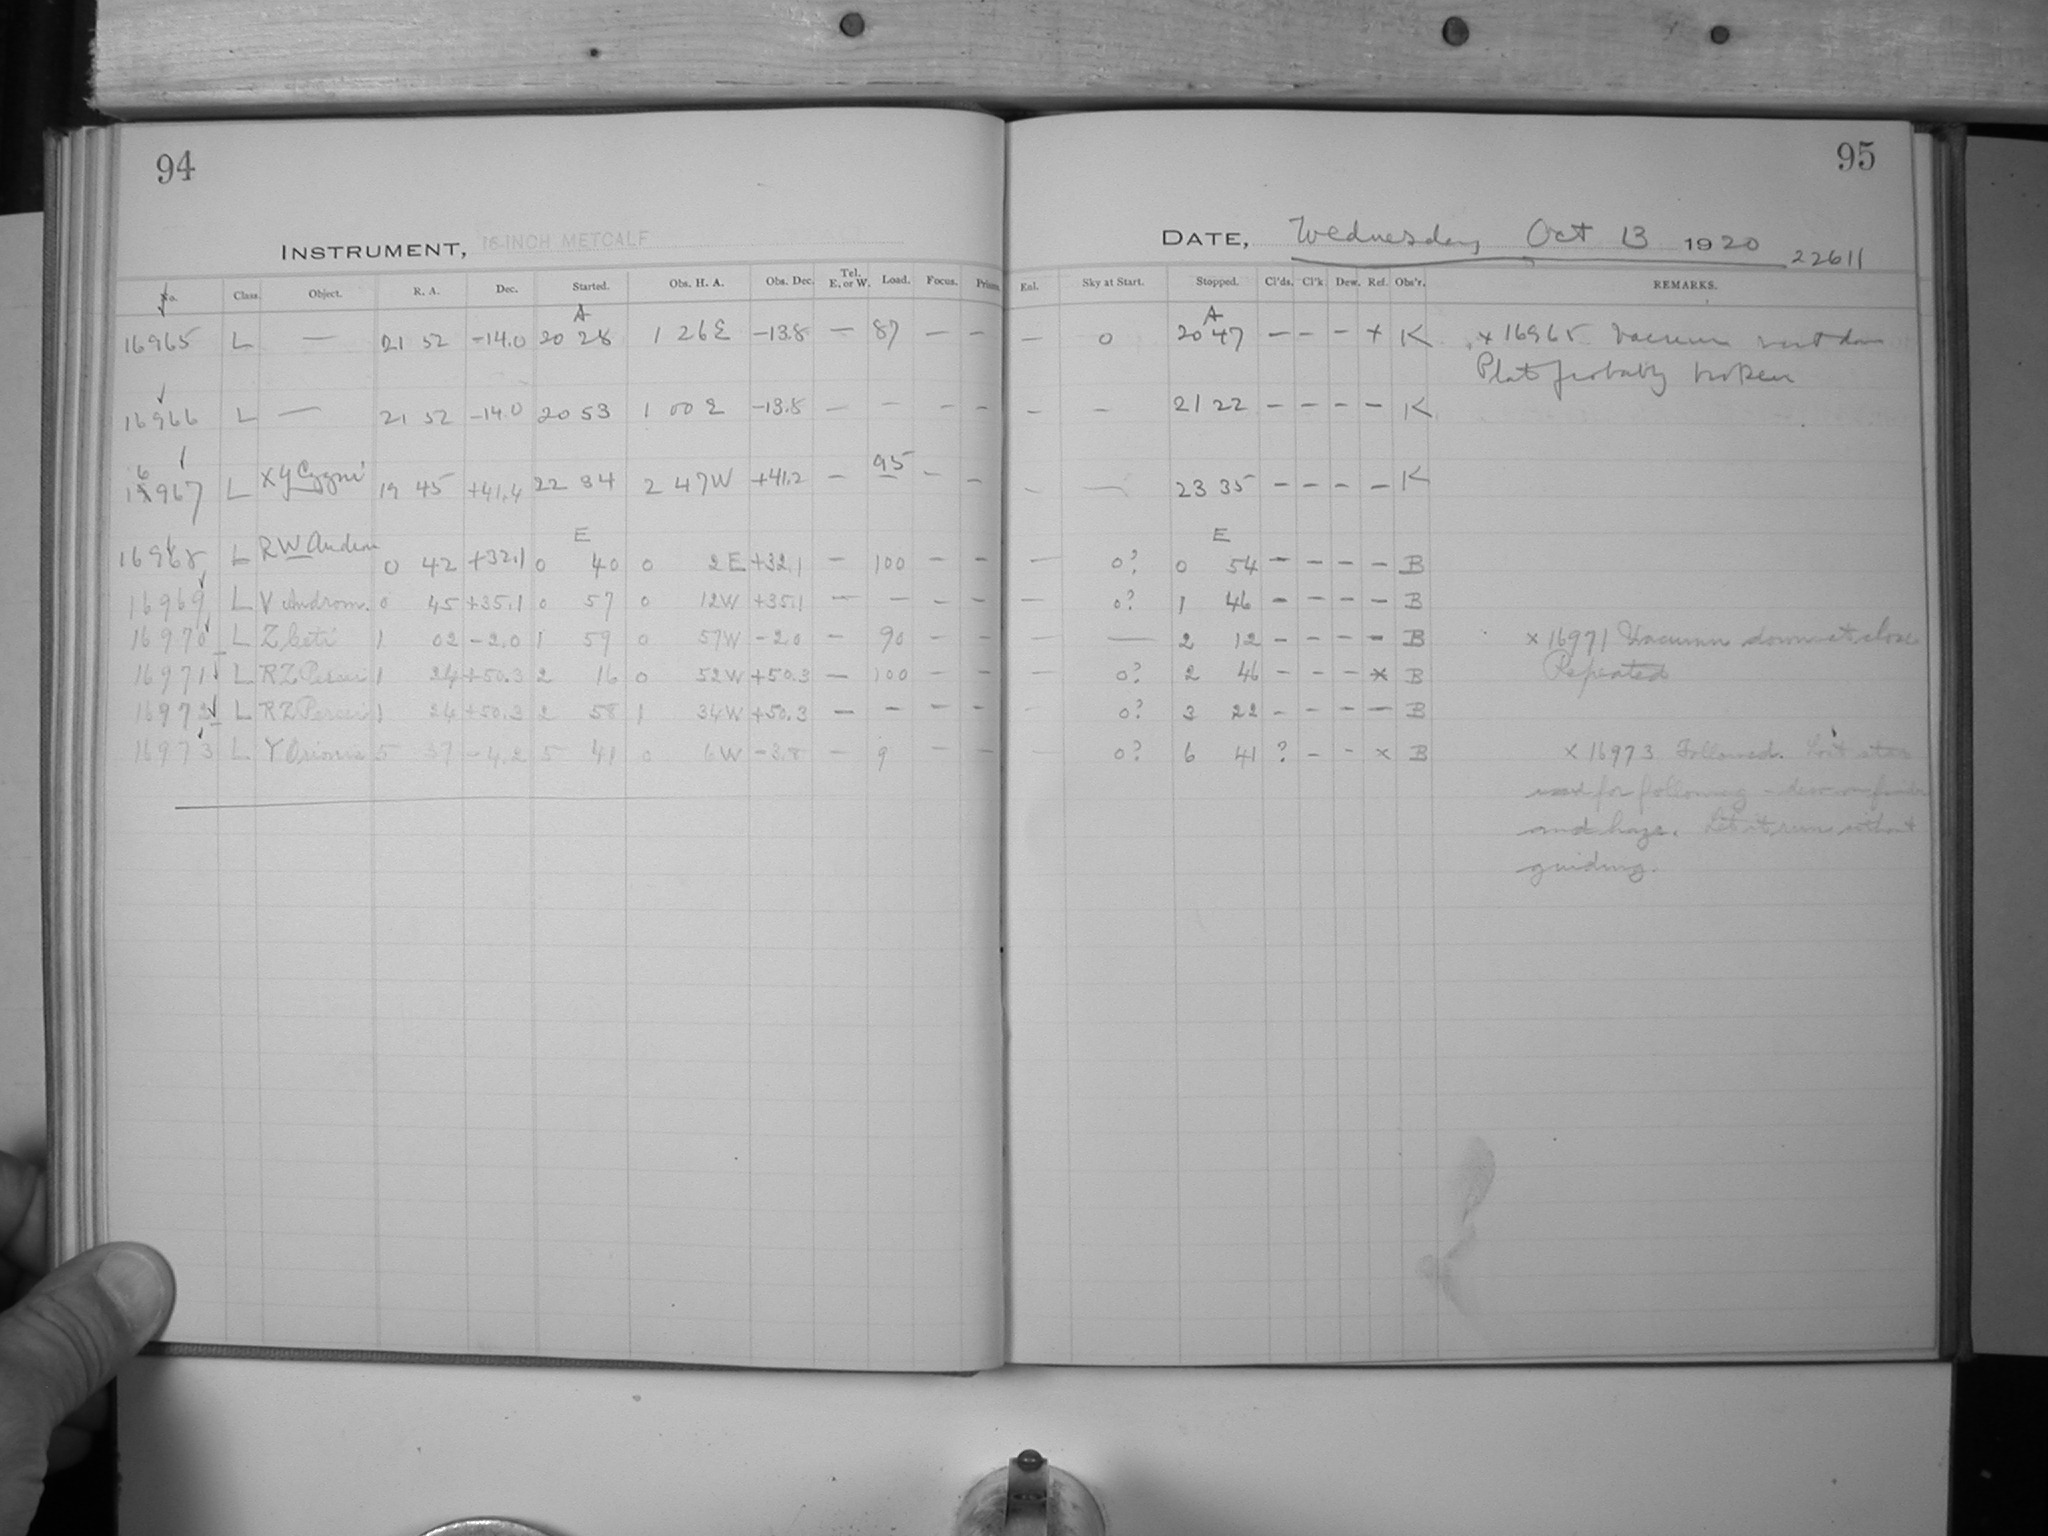 94
95
INSTRUMENT, 16-INCH METCALF
DATE, Wednesday Oct 13 1920 22611
No. Class. Object. R. A. Dec. Started. Obs. H. A. Obs. Dec. Tel. E. or W. Load. Focus. Prism. Enl. Sky at Start. Stopped. Cl'ds. Cl'k Dew. Ref. Obs'r. REMARKS.
A A
16965 L — 21 52 -14.0 20 28 1 26E -13.8 — 87 — — — 0 20 47 — — — x K x 16965 Vacuum went down
Plate probably broken
16966 L — 21 52 -14.0 20 53 1 00 E -13.8 — — — — — — 21 22 — — — — K
16967 L XY Cygni 19 45 +41.4 22 34 2 47W +41.2 — 95 — — — — 23 35 — — — — K
E E
16968 L RW Androm 0 42 +32.1 0 40 0 2E +32.1 — 100 — — — 0? 0 54 — — — — B
16969 L V Androm. 0 45 +35.1 0 57 0 12W +35.1 — — — — — 0? 1 46 — — — — B
16970 L Z Ceti 1 02 -2.0 1 59 0 57W -2.0 — 90 — — — — 2 12 — — — — B x 16971 Vacuum down at close
16971 L RZ Persei 1 24 +50.3 2 16 0 52W +50.3 — 100 — — — 0? 2 46 — — — x B Repeated
16972 L RZ Persei 1 24 +50.3 2 58 1 34W +50.3 — — — — — 0? 3 22 — — — — B
16973 L Y Orionis 5 37 -4.2 5 41 0 6W -3.8 — 9 — — — 0? 6 41 ? — — x B x 16973 Followed. Lost star
used for following - dew on finder
and haze. Let it run without
guiding.